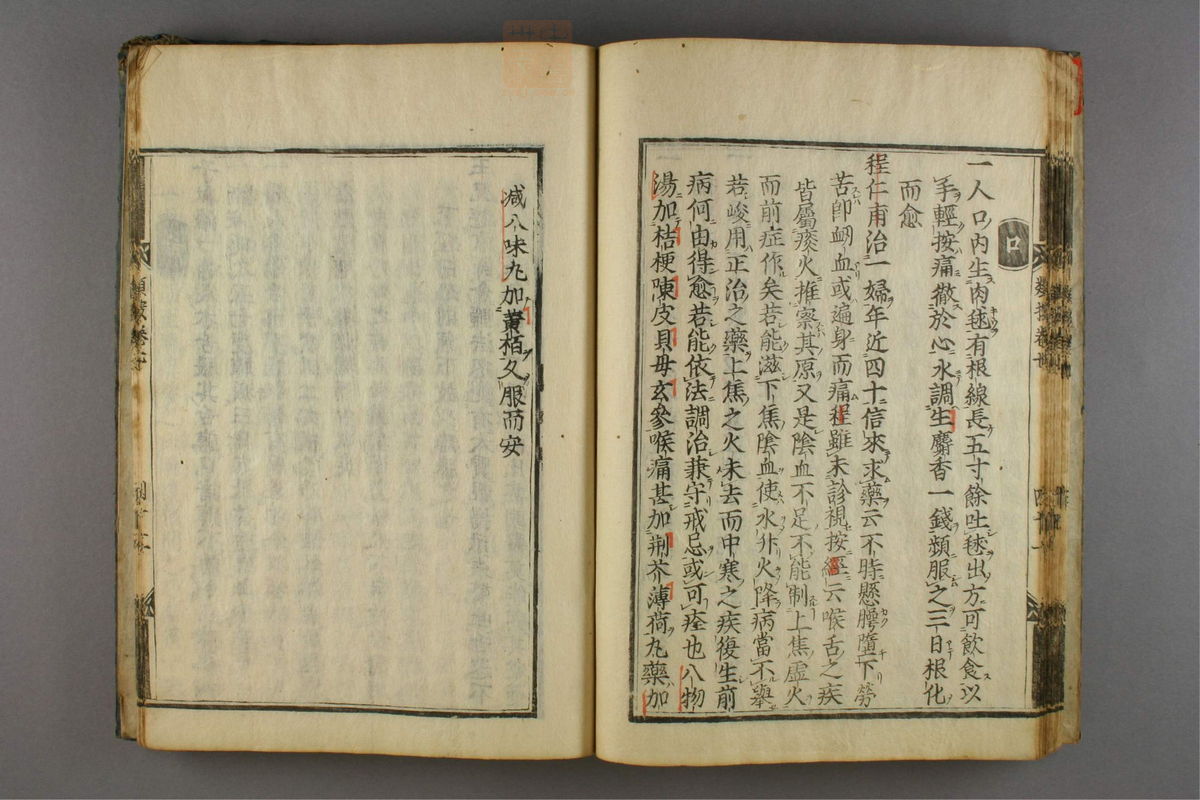 口
一人口内生肉毬有根線長五寸餘吐毬出方可飲食以
手輕按痛徹於心水調生麝香一錢頻服之三日根化
而愈
程仁甫治一婦年近四十信來求藥云不時懸臃墮下勞
苦即衂血或遍身而痛程雖未診視按經云喉舌之疾
皆屬痰火推察其原又是陰血不足不能制上焦虛火
而前症作矣若能滋下焦陰血使水升火降病當不舉
若峻用正治之藥上焦之火未去而中寒之疾復生前
病何由得愈若能依法調治兼守戒忌或可痊也八物
湯加桔梗陳皮貝母玄參喉痛甚加荆芥薄荷丸藥加
减八味丸加黄栢久服而安